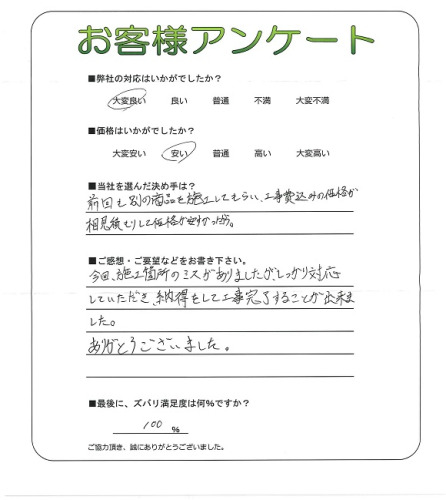 お客様アンケート
■弊社の対応はいかがでしたか？
大変良い 良い 普通 不満 大変不満
■価格はいかがでしたか？
大変安い 安い 普通 高い 大変高い
■当社を選んだ決め手は？
前回も別の商品を施工してもらい、工事費込みの価格が
相見積もりして価格が安かったから。
■ご感想・ご要望などをお書き下さい。
今回、施工箇所のミスがありましたが、しっかり対応
していただき、納得をして工事完了することが出来ま
した。
ありがとうございました。
■最後に、ズバリ満足度は何％ですか？
100 ％
ご協力頂き、誠にありがとうございました。